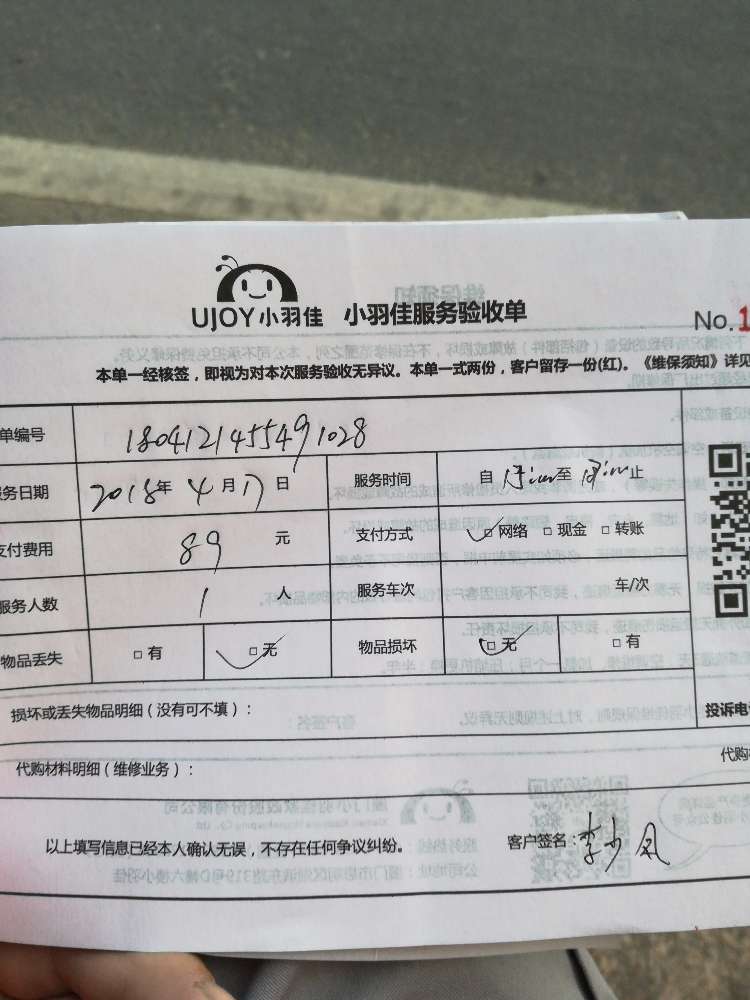 UJOY小羽佳 小羽佳服务验收单
No.1
本单一经核签，即视为对本次服务验收无异议。本单一式两份，客户留存一份(红)。《维保须知》详见
单编号 1804121455491028
务日期 2018年4月17日 服务时间 自 至 止
支付费用 89 元 支付方式 □网络 □现金 □转账
服务人数 1 人 服务车次 车/次
物品丢失 □有 □无 物品损坏 □无 □有
损坏或丢失物品明细（没有可不填）：
投诉电
代购材料明细（维修业务）：
代购
以上填写信息已经本人确认无误，不存在任何争议纠纷。 客户签名：李